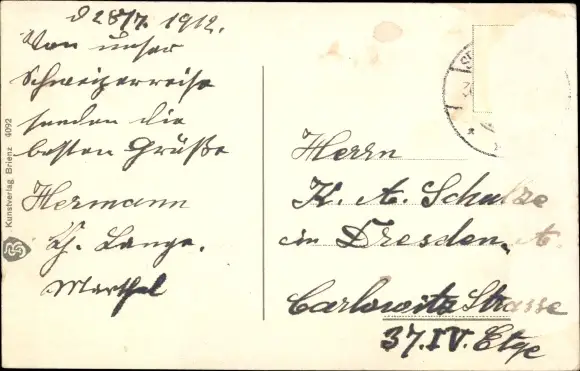 d 28/7. 1912.
Von unser
Schweizerreise
senden die
besten Grüße
Hermann
Lange.
Marthel
Kunstverlag Brienz 4092
Herrn
K. A. Schulze
in Dresden, A.
Carlowitz Strasse
37. IV. Etge